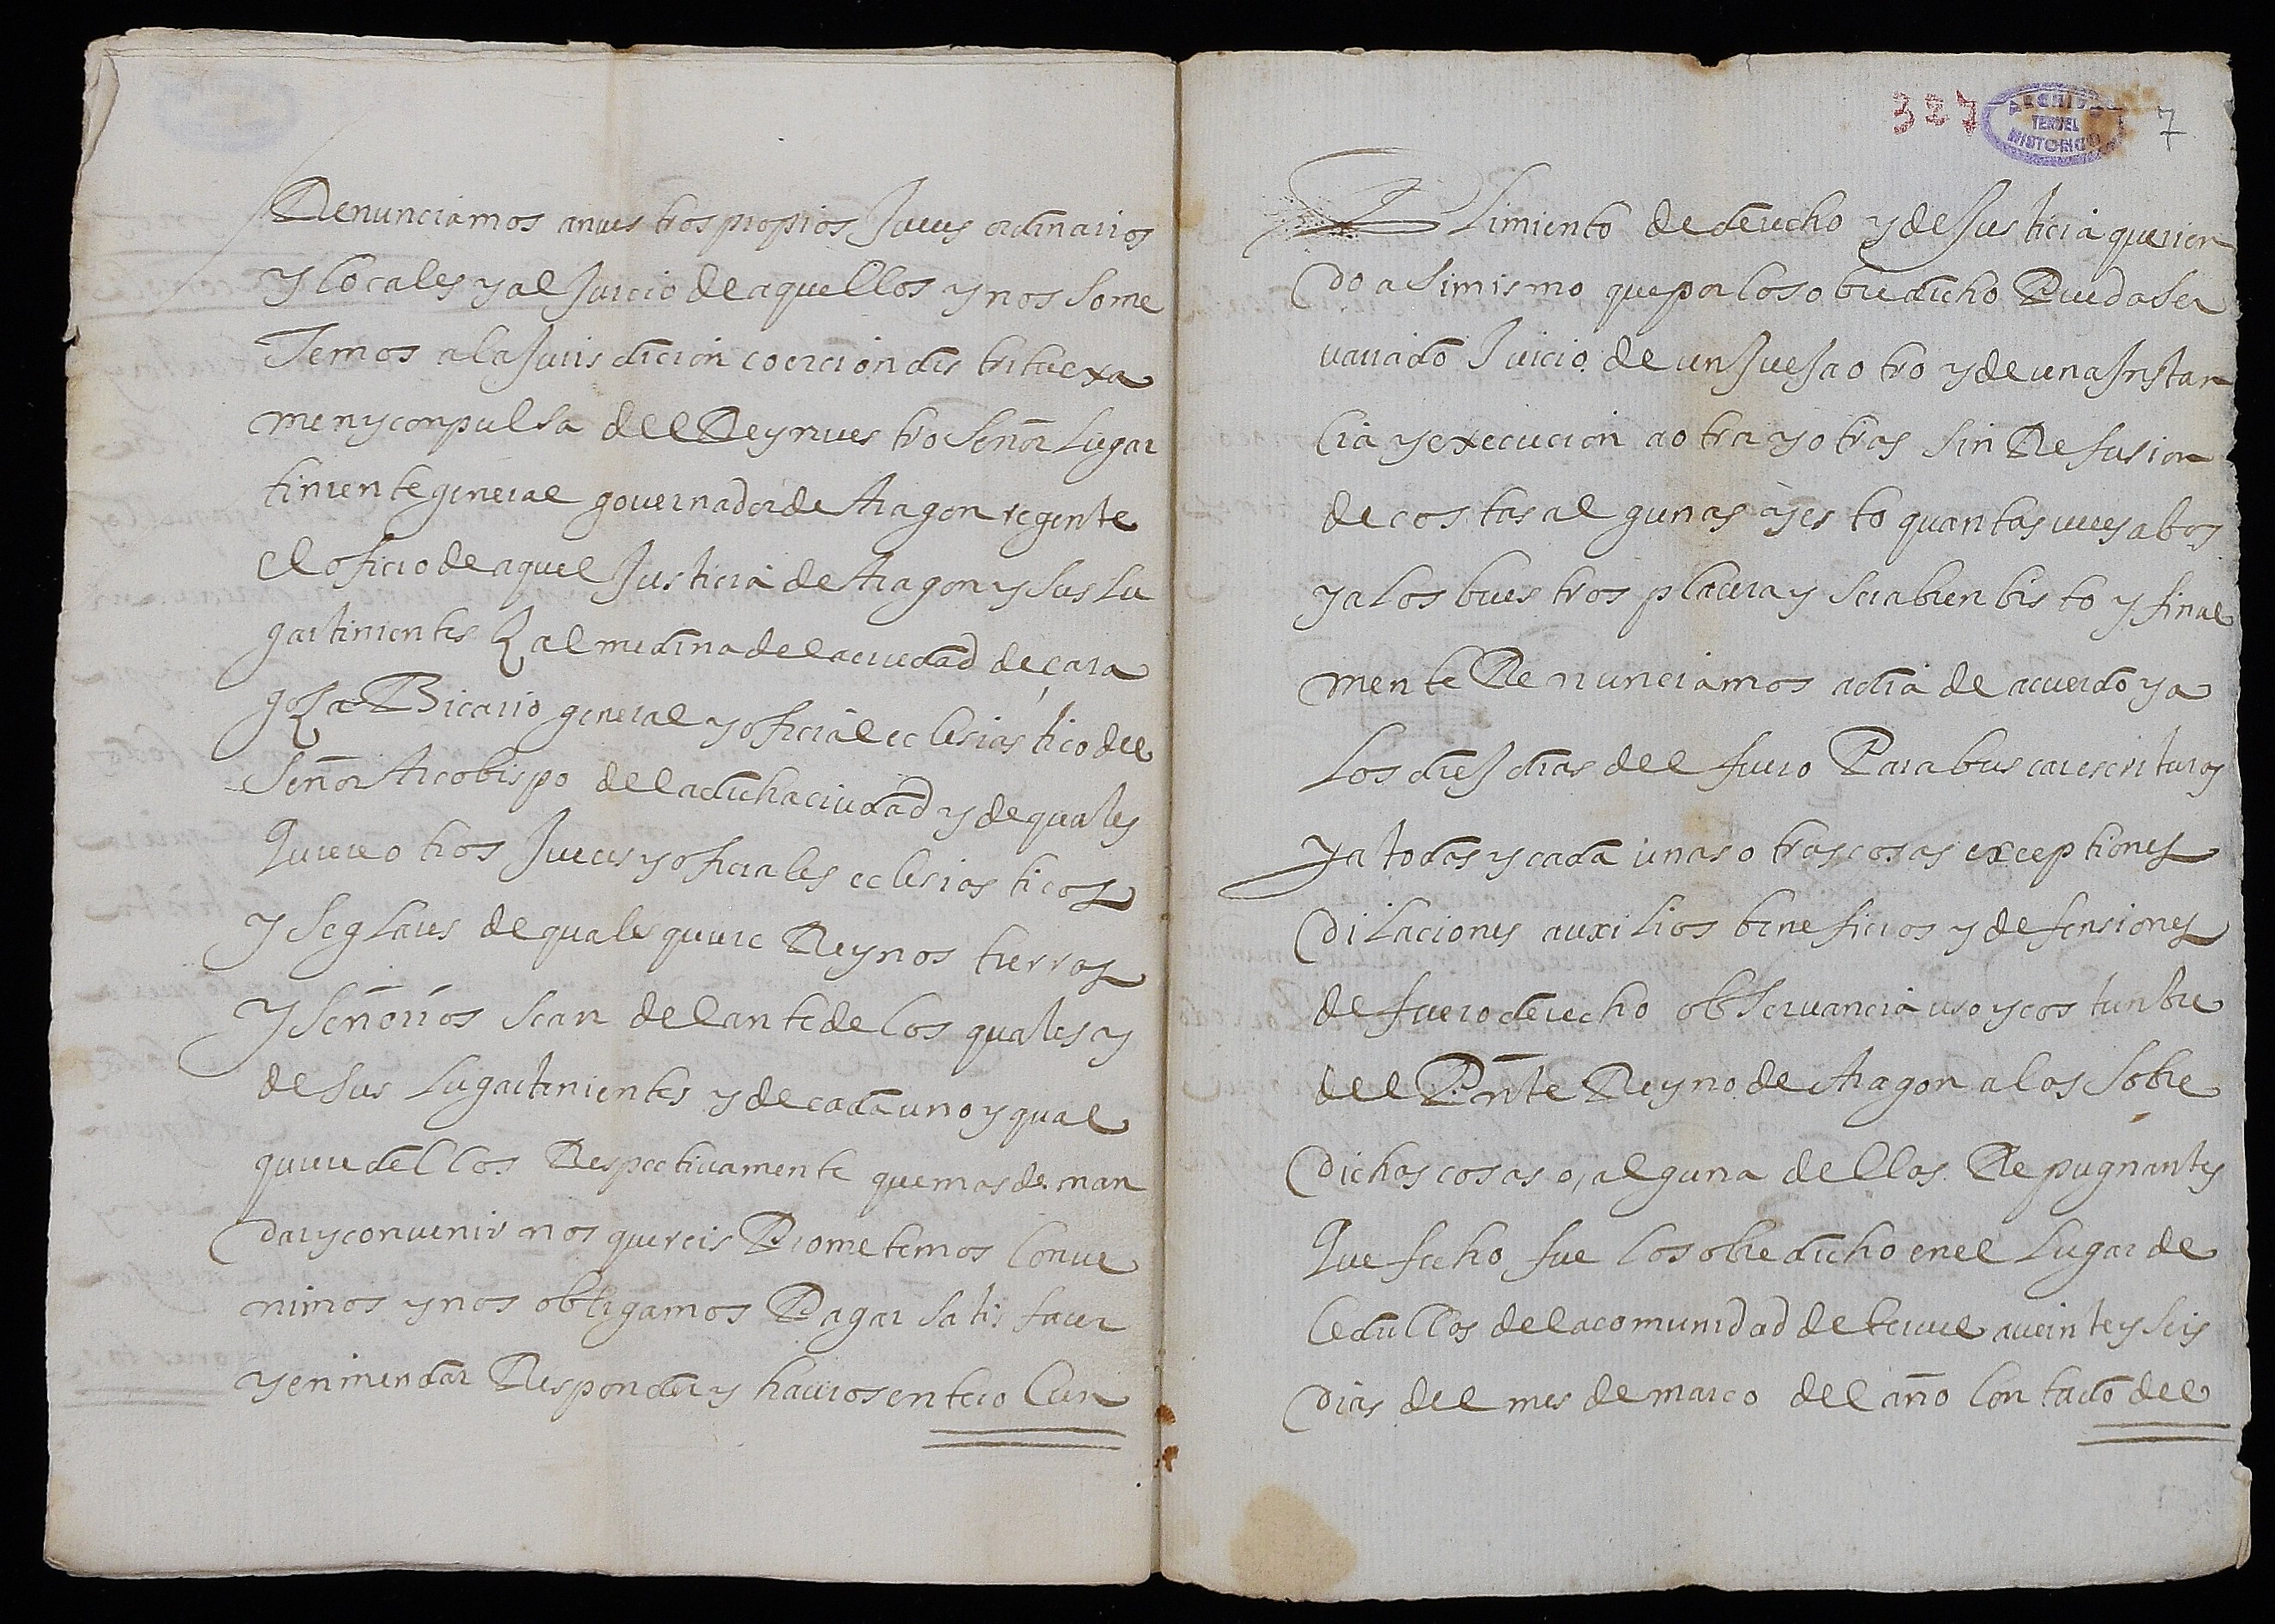 Renunciamos a nuestros propios Jueces ordinarios
y locales y al Juicio de aquellos y nos some
temos a la Jurisdicion coercion distrito exa
men y conpulsa del Rey nuestro Señor Lugar
tiniente general governador de Aragon regente
el oficio de aquel Justicia de Aragon y sus Lu
gartinientes Zalmedina de la ciudad de çara
goza Bicario general y oficial eclesiastico del
Señor Arcobispo de la dicha ciudad y de quales
quiere otros Jueces y oficiales eclesiasticos
y seglares de qualesquiere Reynos tierras
y señorios sean delante de los quales y
de sus Lugartinientes y de cada uno y qual
quiere dellos Respectivamente que mas deman
dar y convenir nos quereis Prometemos conve
nimos y nos obligamos Pagar satisfacer
y enmendar Responder y haceros entero cun
327 ARCHIVO TERUEL HISTORICO 7
Plimiento de derecho y de Justicia querien
do asimismo que por lo sobredicho Pueda ser
variado Juicio de un Juez a otro y de una Instan
cia y execucion a otra y otras sin Refusion
de costas algunas y esto quantas veces a bos
y a los buestros placera y sera bien bisto y final
mente Renunciamos a dia de acuerdo y a
Los diez dias del fuero Para buscar escrituras
y a todas y cada unas otras cosas exceptiones
dilaciones auxilios beneficios y defensiones
de fuero derecho observancia uso y costunbre
del Pnte Reyno de Aragon a las sobre
dichas cosas o, alguna dellas Repugnantes
Que fecho fue lo sobredicho en el Lugar de
Cedrillas de la comunidad de teruel a veinte y seis
dias del mes de março del año contado del